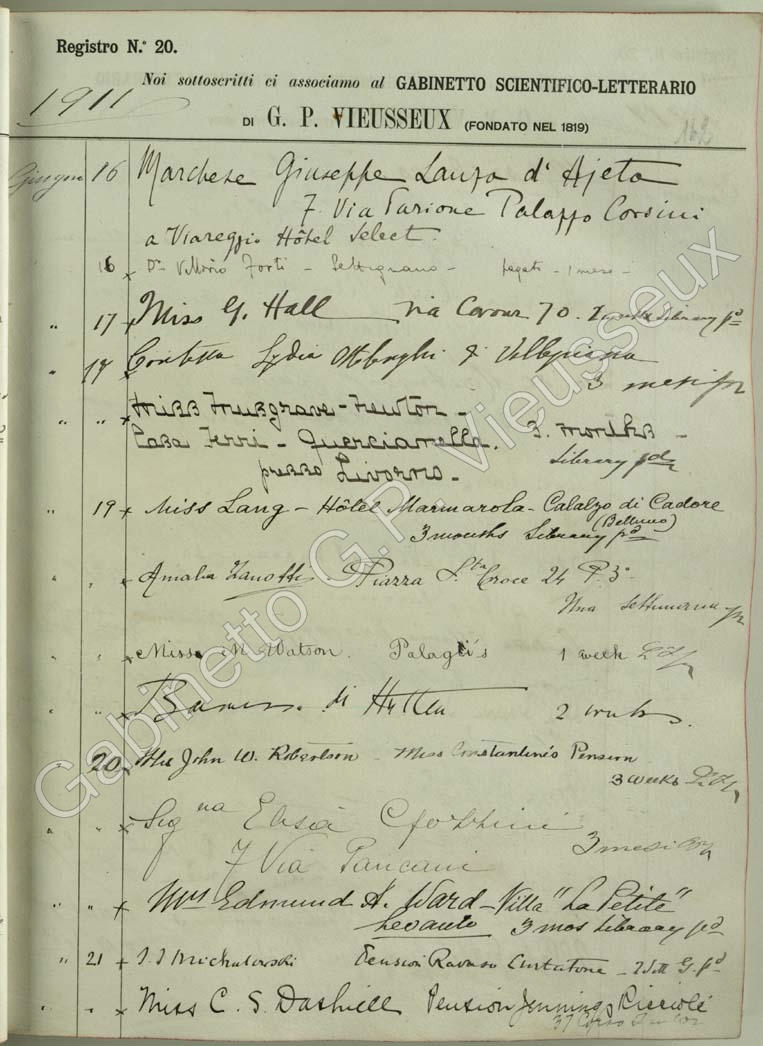 Registro N.° 20.
Noi sottoscritti ci associamo al GABINETTO SCIENTIFICO-LETTERARIO
1911
DI G. P. VIEUSSEUX (FONDATO NEL 1819)
162
Giugno 16 Marchese Giuseppe Lanza d'Ajeta
7. Via Parione Palazzo Corsini
a Viareggio Hôtel Select.
16 x Dr Vittorio Forti - Settignano - pagato - 1 mese -
" 17 x Miss G. Hall Via Cavour 70. Library pd
" 18 x Contessa Lydia
3 mesi
" " Miss Musgrave-Newton -
Casa Ferri - Quercianella. 3. months -
presso Livorno - Library pd
" 19 x Miss Lang - Hôtel Marmarola - Calalzo di Cadore
(Belluno)
3 months Library pd
" " x Amalia Zanotti - Piazza S.ta Croce 24 P. 3°
Una settimana
" " x Miss M. Watson. Palagi's 1 week
" " x di Hutten 2 weeks.
" 20 x Mrs John W. Robertson - Miss Constantine's Pension
3 weeks
" " x Signa
3 mesi
7 Via Pancani
" " x Mrs Edmund A. Ward - Villa "La Petite"
Levanto 3 mos Library pd
" 21 x Pension Curtatone
" " x Miss C. S. Dashiell Pension Jennings Riccioli
37 Corso
Gabinetto G.P. Vieusseux